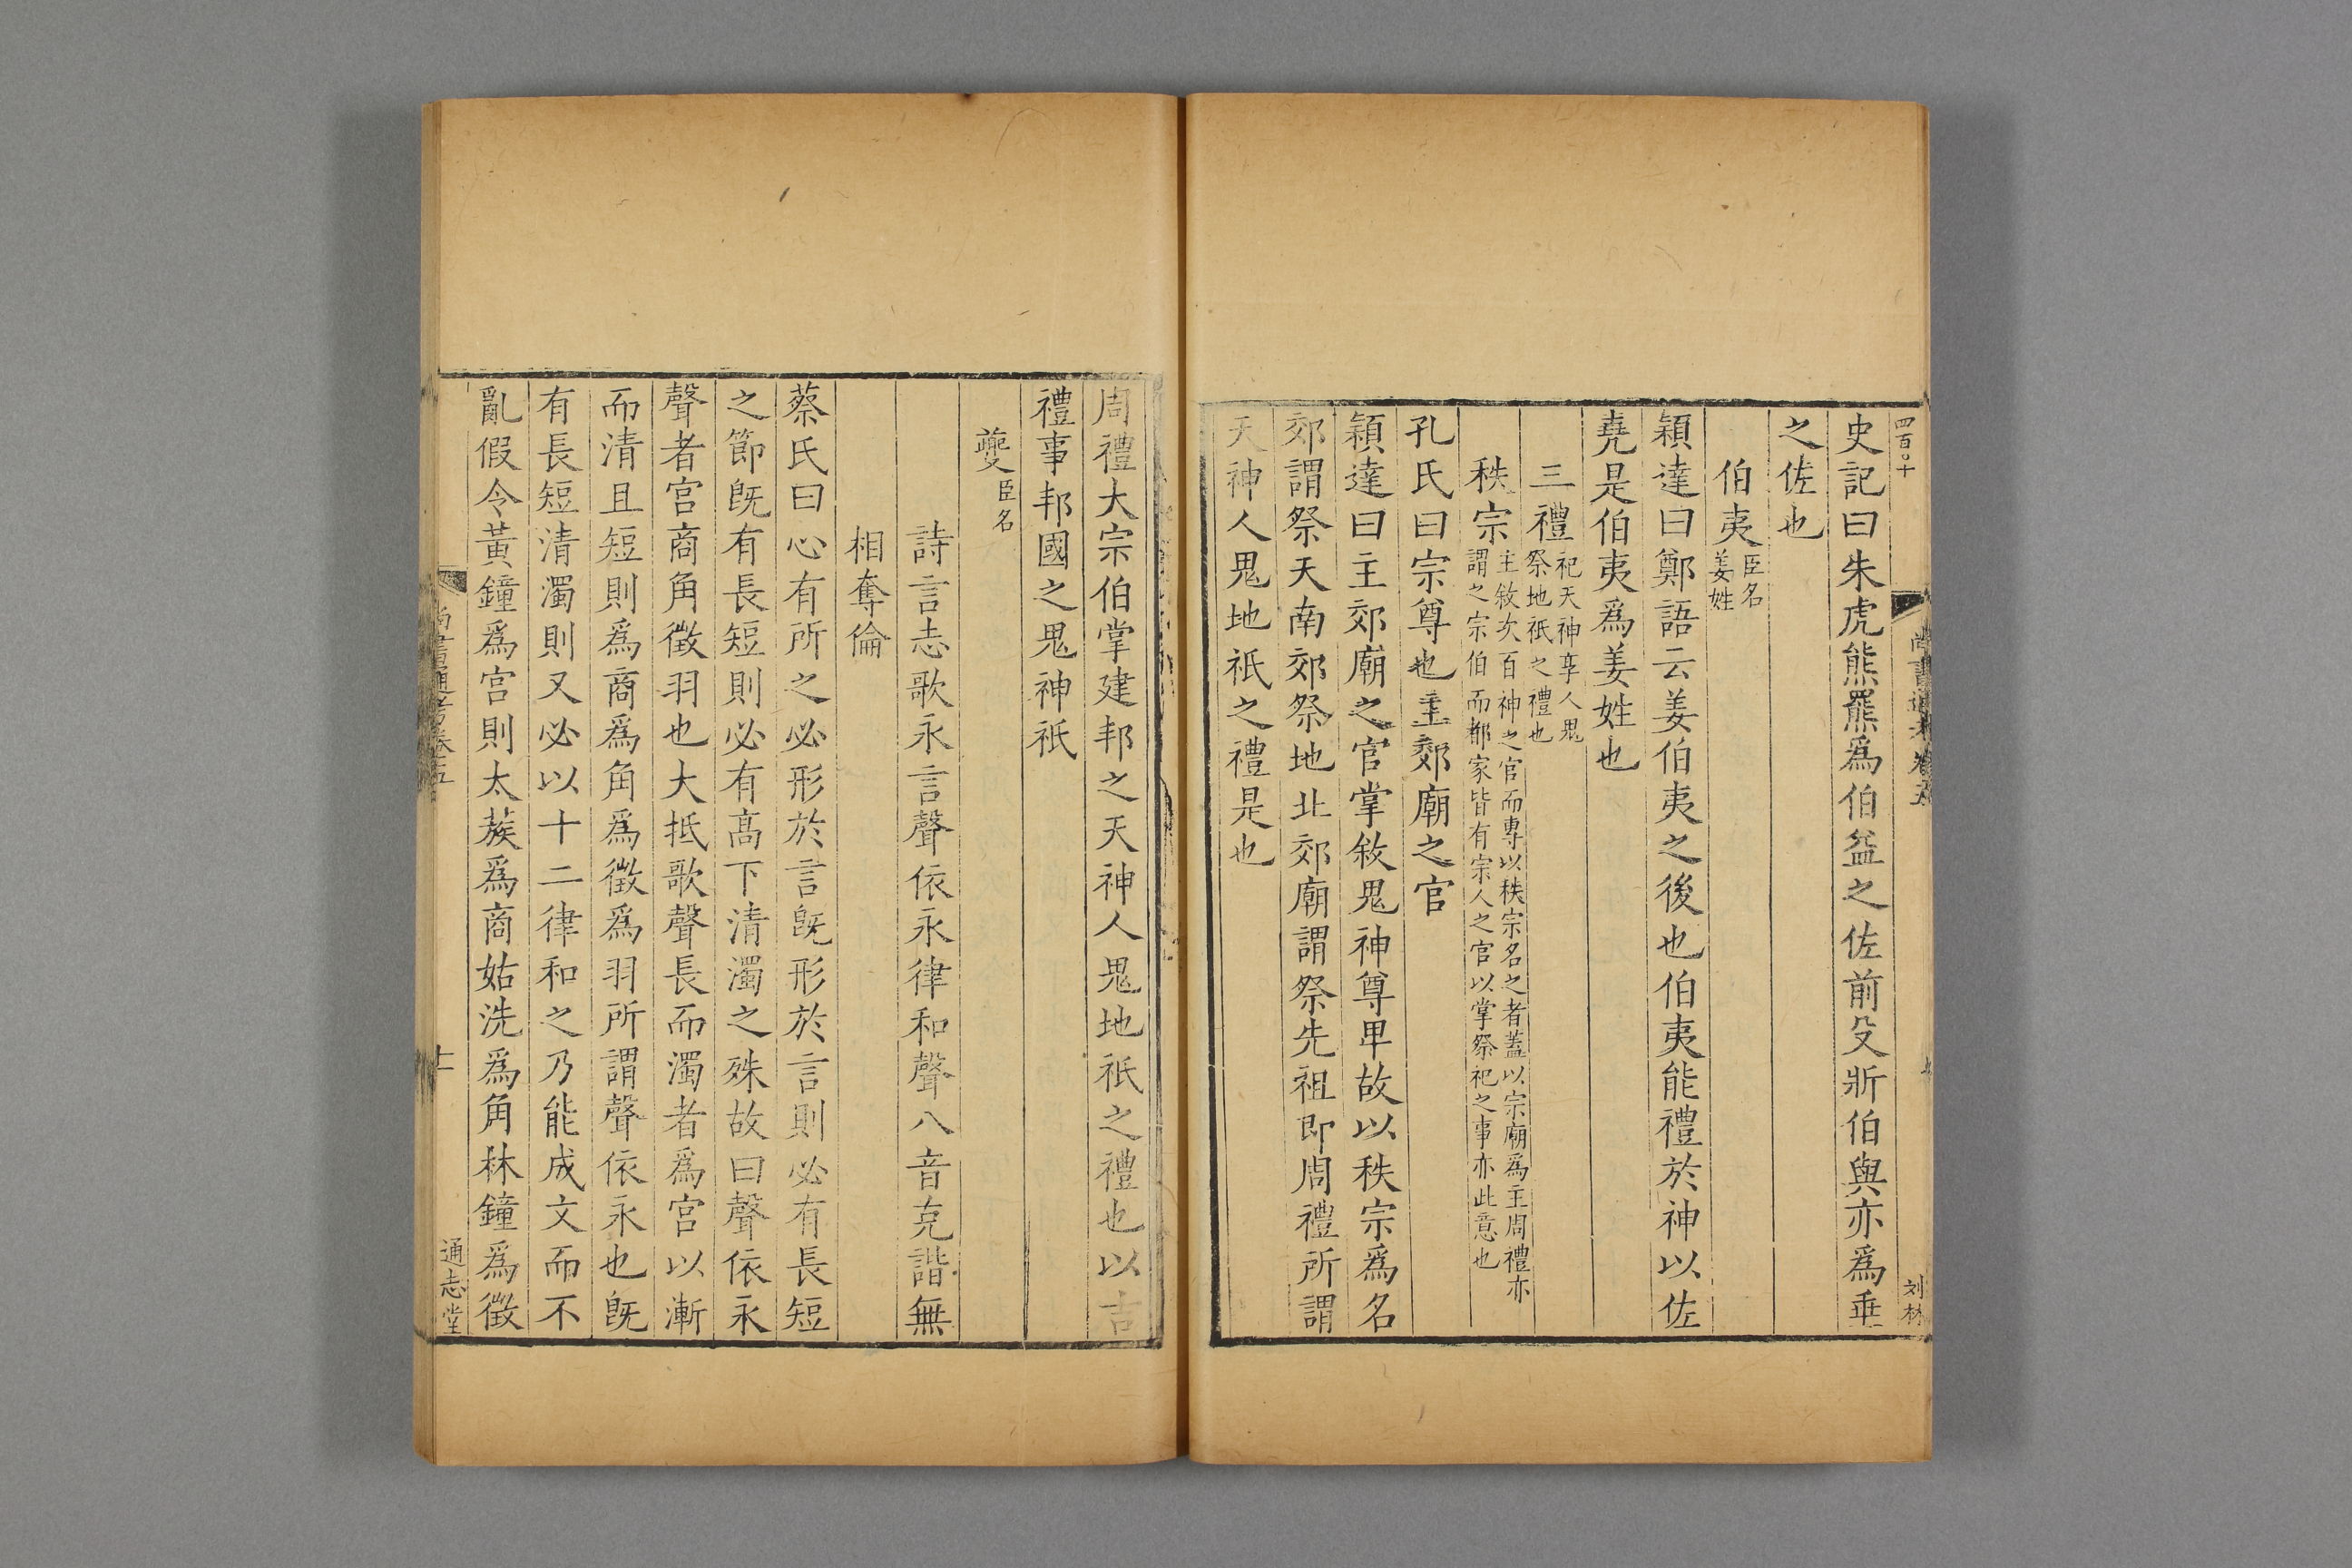 四百〇十
刘林
史記曰朱虎熊羆爲伯益之佐前殳斨伯與亦爲垂
之佐也
伯夷臣名姜姓
穎達曰鄭語云姜伯夷之後也伯夷能禮於神以佐
堯是伯夷爲姜姓也
三禮祀天神享人鬼祭地祇之禮也
秩宗主敘次百神之官而專以秩宗名之者蓋以宗廟爲主周禮亦謂之宗伯而都家皆有宗人之官以掌祭祀之事亦此意也
孔氏曰宗尊也主郊廟之官
穎達曰主郊廟之官掌敘鬼神尊卑故以秩宗爲名
郊謂祭天南郊祭地北郊廟謂祭先祖即周禮所謂
天神人鬼地祇之禮是也
周禮大宗伯掌建邦之天神人鬼地祇之禮也以吉
禮事邦國之鬼神祇
夔臣名
詩言志歌永言聲依永律和聲八音克諧無
相奪倫
蔡氏曰心有所之必形於言旣形於言則必有長短
之節旣有長短則必有高下清濁之殊故曰聲依永
聲者宮商角徵羽也大抵歌聲長而濁者爲宮以漸
而清且短則爲商爲角爲徵爲羽所謂聲依永也旣
有長短清濁則又必以十二律和之乃能成文而不
亂假令黃鐘爲宮則太蔟爲商姑洗爲角林鐘爲徵
尚書通考卷五
十
通志堂